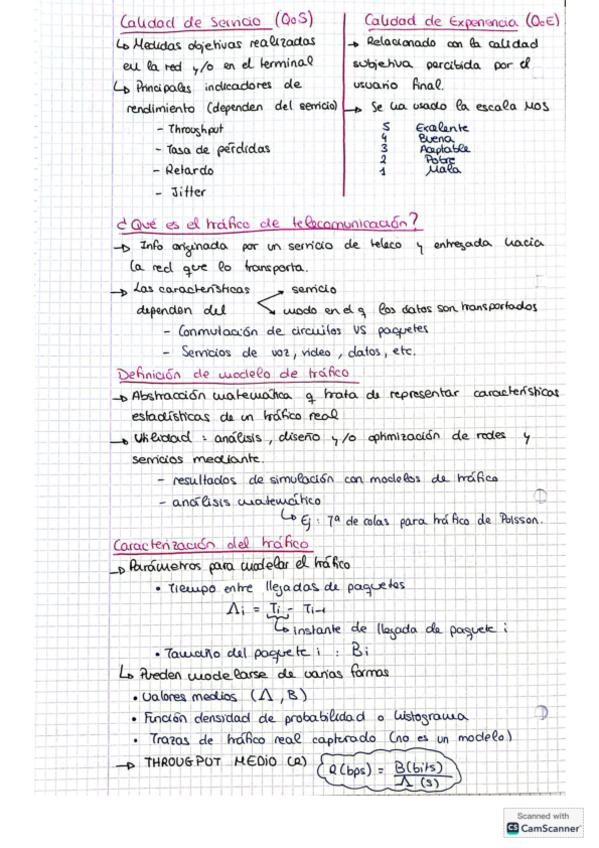 Calidad de Servicio (QoS)
↳ Medidas objetivas realizadas
en la red y/o en el terminal
↳ Principales indicadores de
rendimiento (dependen del servicio)
- Throughput
- Tasa de pérdidas
- Retardo
- Jitter
Calidad de Experiencia (QoE)
→ Relacionado con la calidad
subjetiva percibida por el
usuario final.
→ Se ha usado la escala MOS
5 Excelente
4 Buena
3 Aceptable
2 Pobre
1 Mala
¿Qué es el tráfico de telecomunicación?
→ Info originada por un servicio de teleco y entregada hacia
la red que lo transporta.
→ Las características → servicio
dependen del → modo en el q los datos son transportados
- Conmutación de circuitos VS paquetes
- Servicios de voz, video, datos, etc.
Definición de modelo de tráfico
→ Abstracción matemática q trata de representar características
estadísticas de un tráfico real
→ Utilidad: análisis, diseño y/o optimización de redes y
servicios mediante.
- resultados de simulación con modelos de tráfico
- análisis matemático
↳ Ej: Tª de colas para tráfico de Poisson.
Caracterización del tráfico
→ Parámetros para modelar el tráfico
• Tiempo entre llegadas de paquetes
Λi = Ti - Ti-1
↳ instante de llegada de paquete i
• Tamaño del paquete i: Bi
↳ Pueden modelarse de varias formas
• Valores medios (Λ, B)
• Función densidad de probabilidad o histograma
• Trazas de tráfico real capturado (no es un modelo)
→ THROUGPUT MEDIO (R) R(bps) = B(bits) / Λ(s)
Scanned with
CS CamScanner